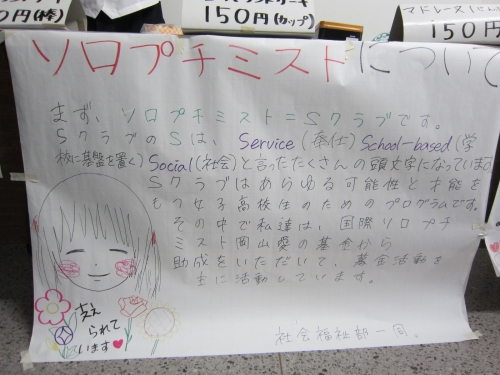 150円(カップ)
150円
ソロプチミストについて
まず、ソロプチミスト＝Sクラブです。
SクラブのSは、Service(奉仕)School-based(学
校に基盤を置く)Social(社会)と言ったたくさんの頭文字になっています
Sクラブはあらゆる可能性と才能を
もつ女子高校生のためのプログラムです。
その中で私達は、国際ソロプチ
ミスト岡山愛の基金から
助成をいただいて、募金活動を
主に活動しています。
支え
られて
います♥
社会福祉部一同。